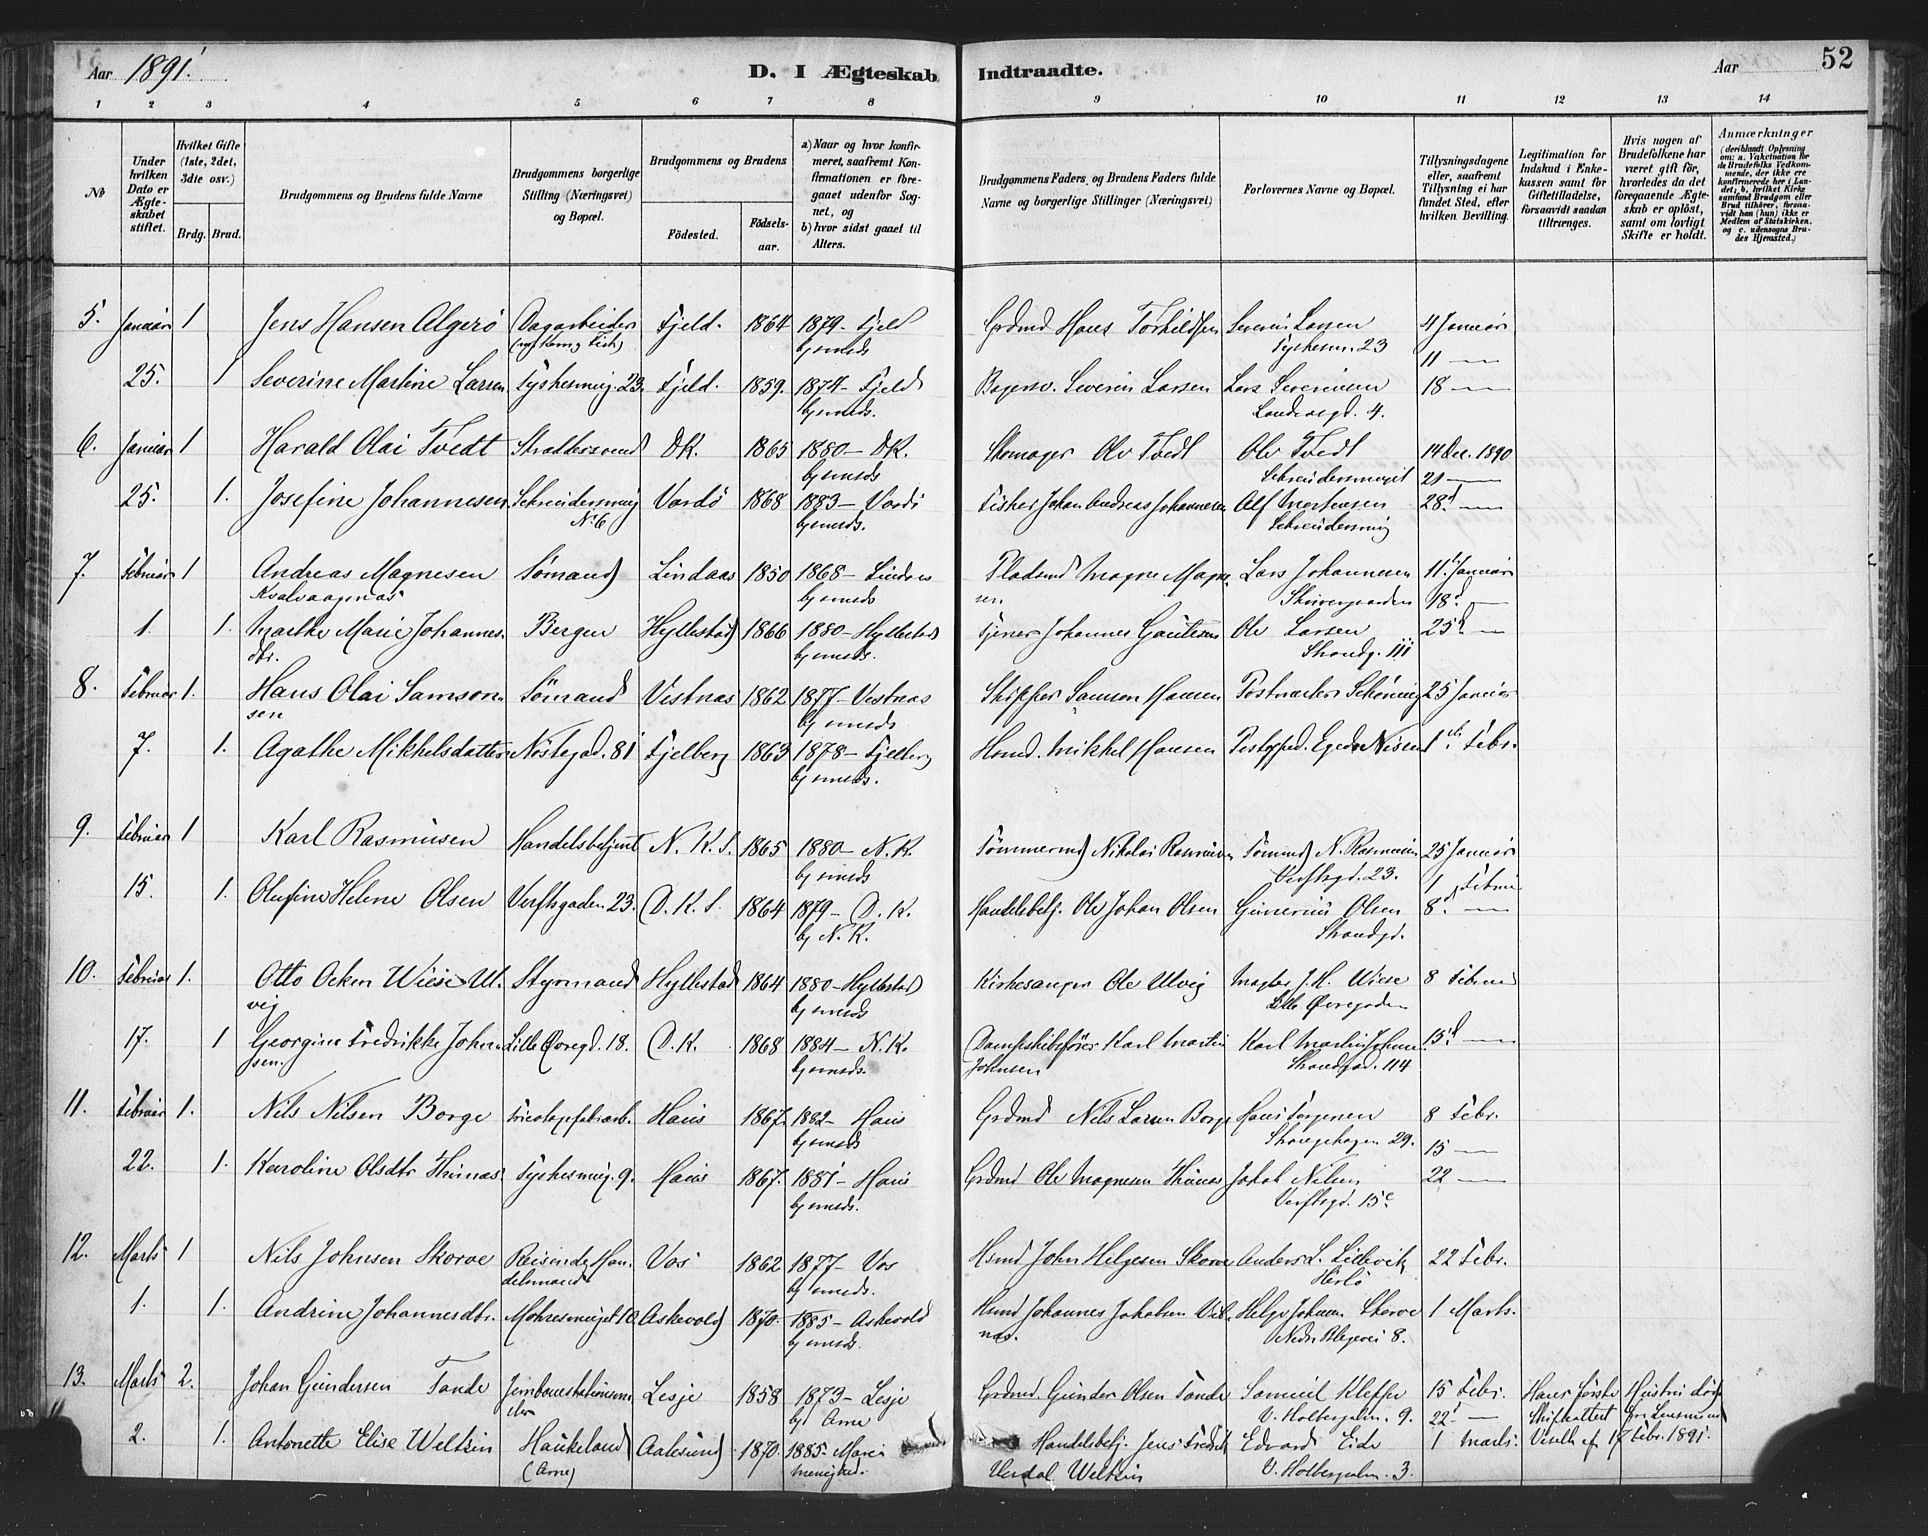 Aar 1891. D. I Ægteskab Indtraadte. Aar 52
1 2 3 4 5 6 7 8 9 10 11 12 13 14
No
Under hvilken Dato er Ægteskabet stiftet.
Hvilket Gifte (1ste, 2det, 3die osv.)
Brdg. Brud.
Brudgommens og Brudens fulde Navne
Brudgommens borgerlige Stilling (Næringsvei) og Bopæl.
Brudgommens og Brudens
Fødested.
Fødselsaar.
a) Naar og hvor konfirmeret, saafremt Konfirmationen er foregaaet udenfor Sognet, og
b) hvor sidst gaaet til Alters.
Brudgommens Faders og Brudens Faders fulde Navne og borgerlige Stillinger (Næringsvei)
Forlovernes Navne og Bopæl.
Tillysningsdagene eller, saafremt Tillysning ei har fundet Sted, efter hvilken Bevilling.
Legitimation for Indskud i Enkekassen samt for Giftetilladelse, forsaavidt saadan tiltrænges.
Hvis nogen af Brudefolkene har været gift før, hvorledes da det foregaaende Ægteskab er opløst, samt om lovligt Skifte er holdt.
Anmærkninger
(deriblandt Oplysning om: a. Vakcination for de Brudefolks Vedkommende, der ikke ere konfirmerede her i Landet; b. hvilket Kirkesamfund Brudgom eller Brud tilhører, forsaavidt han (hun) ikke er Medlem af Statskirken, og c. udensogns Brudes Hjemsted.)
5. Januar 1 Jens Hansen Algerö Dagarbeider Fjeld. 1864 1879 - Fjeld Grdmd Hans Torkildsen Severin Larsen 4 Januar
b) smsds Tyskesm. 23 11 —
25. 1 Severine Martine Larsen Tyskesmug. 23. Fjeld. 1859. 1874 - Fjeld Severin Larsen Lars Severinsen 18 —
b) smsds. 4.
6. Januar 1 Harald Olai Tvedt DK. 1865 1880 - DK. Skomager Ole Tvedt Ole Tvedt 14 Dec. 1890
b) smsds Schreudersmuget 21 —
25. 1. Josefine Johannesen Schreudersmug Vardö 1868 1883 - Vardö Fisker Johan Andreas Johannesen Alf Mortensen 28 —
No 6 b) smsds. Schreudersmug
7. Februar 1 Andreas Magnesen Sømand Lindaas 1850 1868 - Lindaas Pladsmd Magne Magne- Lars Johannesen 11 Januar
Kvalvaagenæs b) smsds sen Skivergaarden 18 —
1. 1. Marthe Marie Johannes- Bergen Hyllestad 1866 1880 - Hyllestad Tjener Johannes Gautesen Ole Larsen 25 —
dtr. b) smsds. Strandg. 111
8. Februar 1. Hans Olai Samson- Sömand Vestnæs 1862 1877 - Vestnæs Skipper Samson Hansen Postmester Schöning 25 Januar
sen b) smsds
7. 1. Agathe Mikkelsdatter Nöstegad. 81 Fjelberg 1863 1878 - Fjelberg Hsmd. Mikkel Hansen Postexped. Egede Nissen 1 Febr.
b) smsds.
9. Februar 1 Karl Rasmusen Handelsbetjent N. K. S. 1865 1880 - N. K. Tömmermd Nikolai Rasmusen Tömmd N. Rasmusen 25 Januar
b) smsds Verftsgd. 23. 1 Februar
15 1. Olufine Helene Olsen Verftsgaden 23. D. K. S. 1864 1879 - D. K. Handelsbetj. Ole Johan Olsen Gunerius Olsen 8 —
b) N. K. Strandgd.
10. Februar 1. Otto Ocken Wiese Ul- Styrmand Hyllestad 1864 1880 - Hyllestad Kirkesanger Ole Ulvig Mægler J. H. Wiese 8 Februar
vig b) smsds Lille Øvregaden
17. 1 Georgine Fredrikke John- Lille Øvregd. 18. D. K. 1868 1884 - N. K. Dampskibsförer Karl Martin Karl Martin Johnsen 15 —
sen. b) smsds. Johnsen Strandgad. 114
11. Februar 1. Nils Nilsen Borge Tricotagefabarb. Haus 1867. 1882 - Haus Grdmd Nils Larsen Borge Hans Torgersen 8 Febr.
b) smsds Skougehagen 29. 15 —
22. 1. Karoline Olsdtr Thunæs Tyskesmug. 9. Haus 1867. 1881 - Haus Grdmd Ole Magnesen Thunæs Jakob Nilsen 22 —
b) smsds. Verftsgd. 15c
12. Marts 1 Nils Johnsen Skorve Reisende Han- Vos 1862 1877 - Vos Hsmd John Helgesen Skorve Anders L. Lillevik 22 Febr.
delsmand b) smsds. Herlö
1. 1. Andrine Johannesdtr. Mohresmuget 10 Askevold 1870. 1885 - Askevold Hsmd Johannes Jakobsen Vil- Helge Johnsen Skorve 1 Marts.
b) smsds. næs. Nedre Blegevei 8.
13. Marts 2. Johan Gundersen Tande Jernbanestationsme- Lesje 1858 1873 - Lesje Grdmd. Gunder Olsen Tande Samuel Kleppe 15 Febr. Hans første Hustru död
ster b) Arne V. Holbergsalm. 9. 22 — Skifteattest fra Lensmand
2. 1. Antonette Elise Weltzin Haukeland Aalesund 1870. 1885 Maria Handelsbetj. Jens Fredrik Edvard Eide 1 Marts. 17 Febr. 1891.
(Arne) menighed. Uerdal Weltzin V. Holbergsalm. 3.